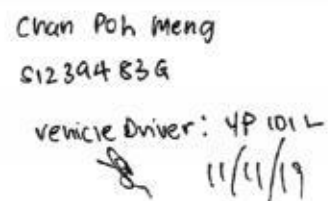 Chan Poh Meng
S1239483G
vehicle Driver: YP 101 L
11/11/19